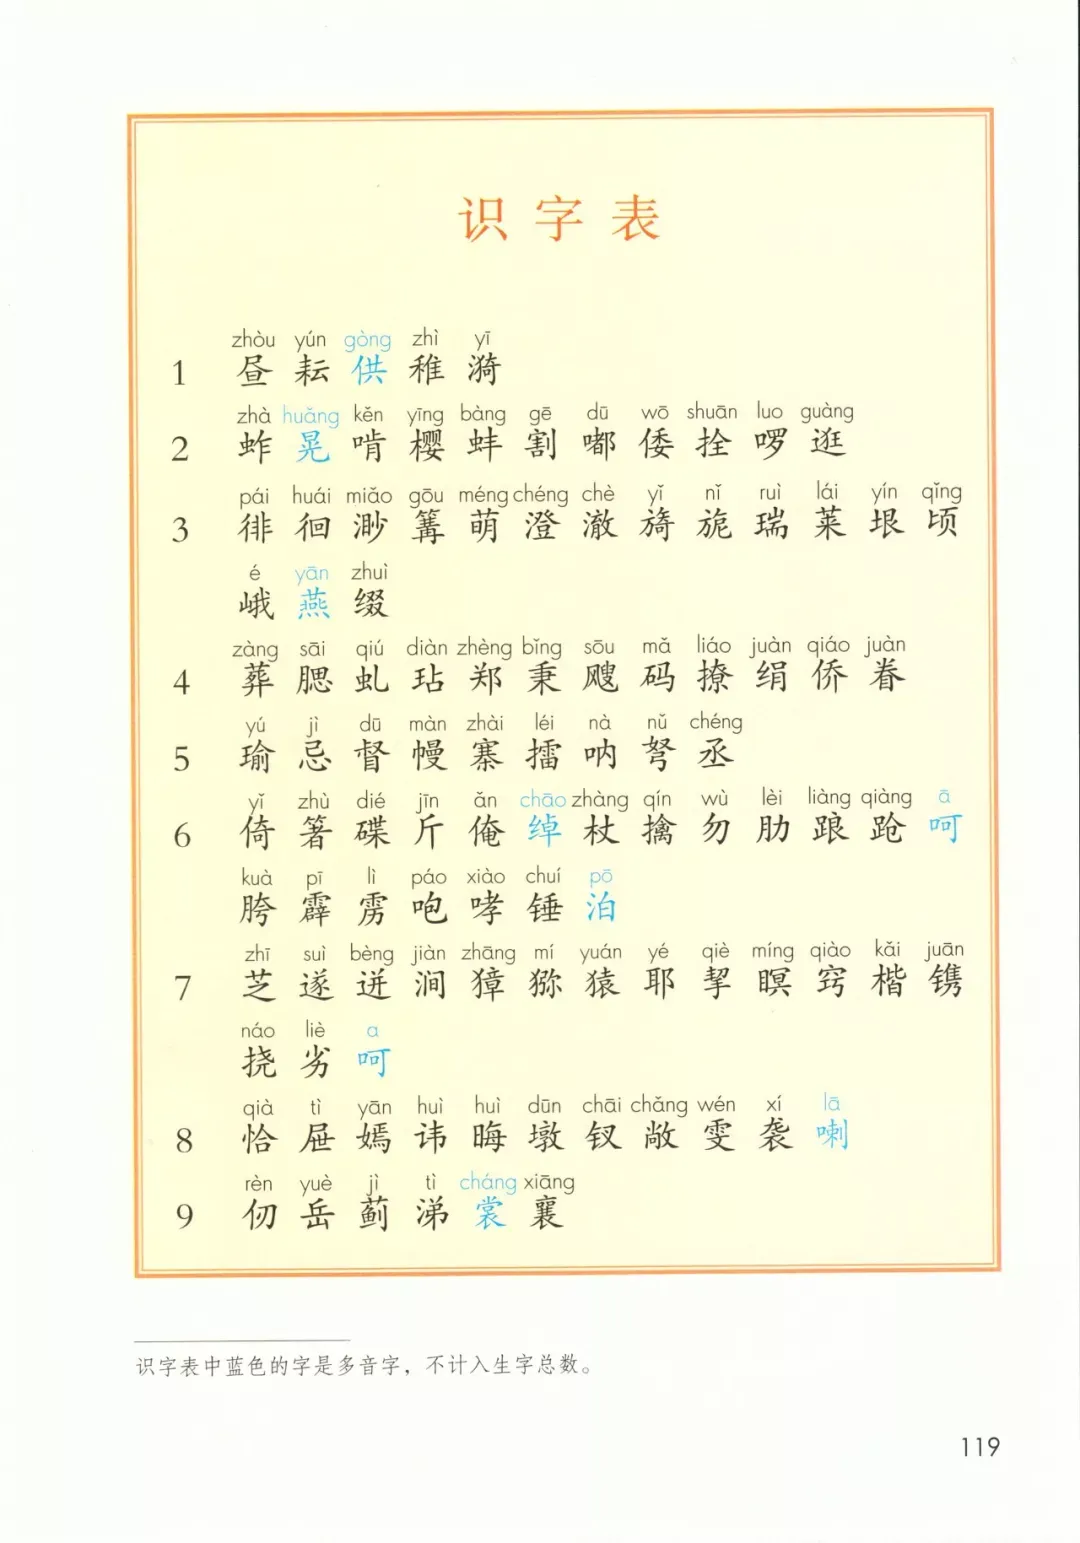 识字表
zhòu yún gòng zhì yī
1 昼 耘 供 稚 漪
zhà huǎng kěn yīng bàng gē dū wō shuān luo guàng
2 蚱 晃 啃 樱 蚌 割 嘟 倭 拴 啰 逛
pái huái miǎo gōu méng chéng chè yǐ nǐ ruì lái yín qǐng
3 徘 徊 渺 篝 萌 澄 澈 旖 旎 瑞 莱 垠 顷
é yān zhuì
峨 燕 缀
zàng sāi qiú diàn zhèng bǐng sōu mǎ liáo juàn qiáo juàn
4 葬 腮 虬 玷 郑 秉 飕 码 撩 绢 侨 眷
yú jì dū màn zhài léi nà nǔ chéng
5 瑜 忌 督 幔 寨 擂 呐 弩 丞
yǐ zhù dié jīn ǎn chāo zhàng qín wù lèi liàng qiàng ā
6 倚 箸 碟 斤 俺 绰 杖 擒 勿 肋 踉 跄 呵
kuà pī lì páo xiào chuí pō
胯 霹 雳 咆 哮 锤 泊
zhī suì bèng jiàn zhāng mí yuán yé qiè míng qiào kǎi juān
7 芝 遂 迸 涧 獐 猕 猿 耶 挈 瞑 窍 楷 镌
náo liè a
挠 劣 呵
qià tì yān huì huì dūn chāi chǎng wén xí lā
8 恰 屉 嫣 讳 晦 墩 钗 敞 雯 袭 喇
rèn yuè jì tì cháng xiāng
9 仞 岳 蓟 涕 裳 襄
识字表中蓝色的字是多音字，不计入生字总数。
119